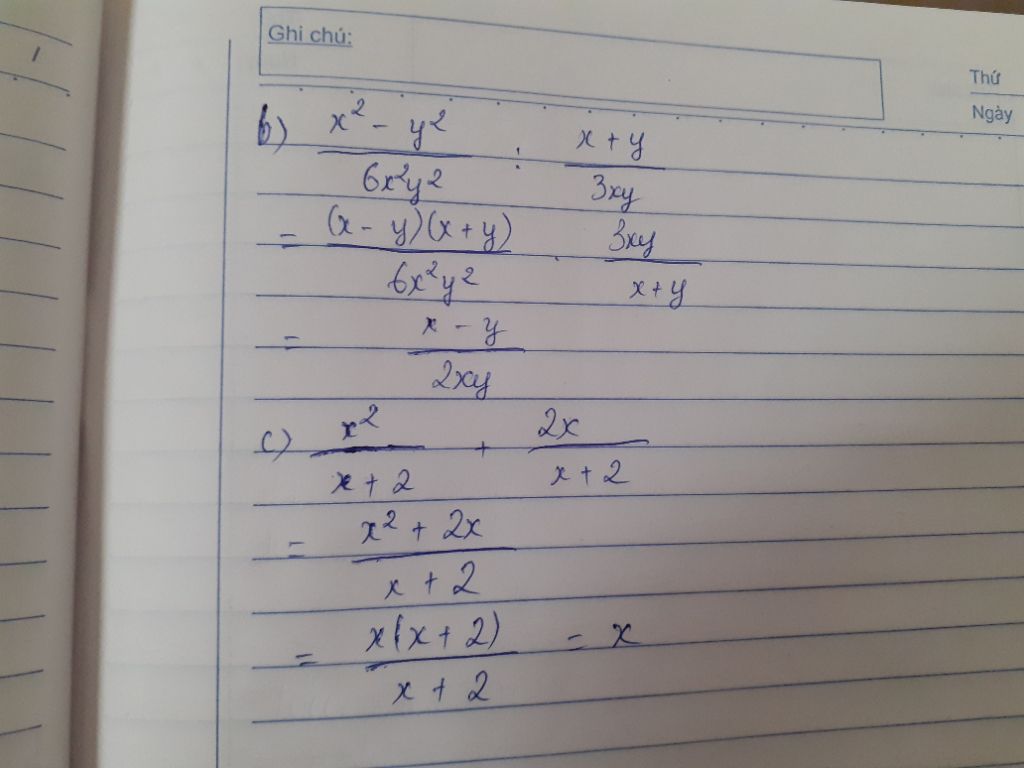 Ghi chú:
Thứ
Ngày
b) \frac{x^2 - y^2}{6x^2y^2} : \frac{x + y}{3xy}
= \frac{(x - y)(x + y)}{6x^2y^2} . \frac{3xy}{x + y}
= \frac{x - y}{2xy}
c) \frac{x^2}{x + 2} + \frac{2x}{x + 2}
= \frac{x^2 + 2x}{x + 2}
= \frac{x(x + 2)}{x + 2} = x